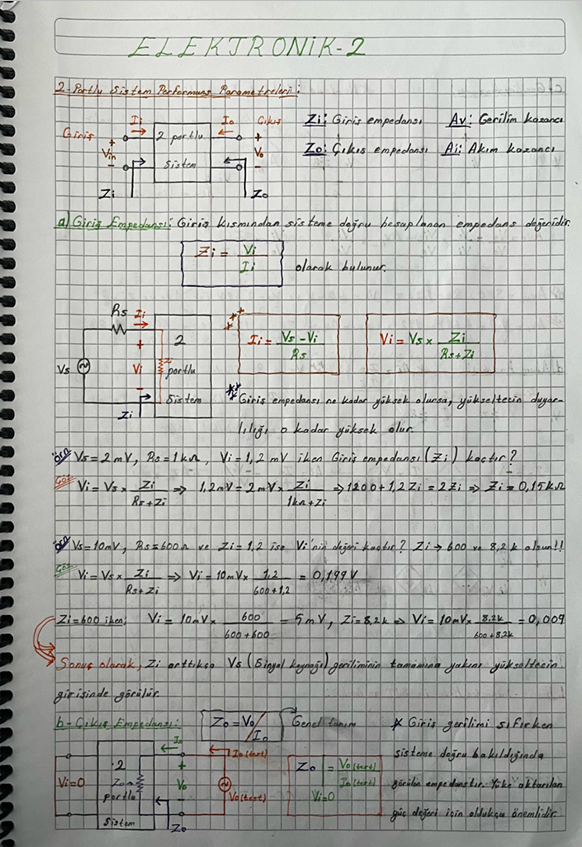 ELEKTRONİK-2
2-Portlu Sistem Performans Parametreleri:
Giriş Ii Io Çıkış
+ Vin - 2 portlu sistem + Vo -
Zi Zo
Zi: Giriş empedansı Av: Gerilim kazancı
Zo: Çıkış empedansı Ai: Akım kazancı
a) Giriş Empedansı: Giriş kısmından sisteme doğru hesaplanan empedans değeridir.
Zi = Vi / Ii olarak bulunur.
Rs Ii
Vs + Vi - 2 portlu sistem
Zi
Ii = Vs - Vi / Rs
Vi = Vs x Zi / Rs+Zi
Giriş empedansı ne kadar yüksek olursa, yükseltecin duyar-
lılığı o kadar yüksek olur.
Örn Vs=2mV, Rs=1kΩ, Vi=1,2 mV iken Giriş empedansı (Zi) kaçtır?
Çöz: Vi = Vs x Zi / Rs+Zi => 1.2mV = 2mV x Zi / 1kΩ+Zi => 1200+1,2Zi = 2Zi => Zi = 0,15kΩ
Örn Vs=10mV, Rs=600Ω ve Zi=1,2 ise Vi'nin değeri kaçtır? Zi → 600 ve 8,2k olsun!!
Çöz: Vi = Vs x Zi / Rs+Zi => Vi = 10mV x 1,2 / 600+1,2 = 0,199V
Zi=600 iken; Vi = 10mV x 600 / 600+600 = 5mV, Zi=8,2k => Vi = 10mV x 8.2k / 600+8.2k = 0,009
Sonuç olarak, Zi arttıkça Vs (Sinyal kaynağı) geriliminin tamamına yakını yükseltecin
girişinde görülür.
b- Çıkış Empedansı: Zo = Vo / Io Genel tanım
Vi=0 2 portlu sistem Zo Io + Vo - Io(test) Vo(test)
Zo
Zo = Vo(test) / Io(test) Vi=0
* Giriş gerilimi sıfırken
sisteme doğru bakıldığında
görülen empedanstır. Yüke aktarılan
güç değeri için oldukça önemlidir.